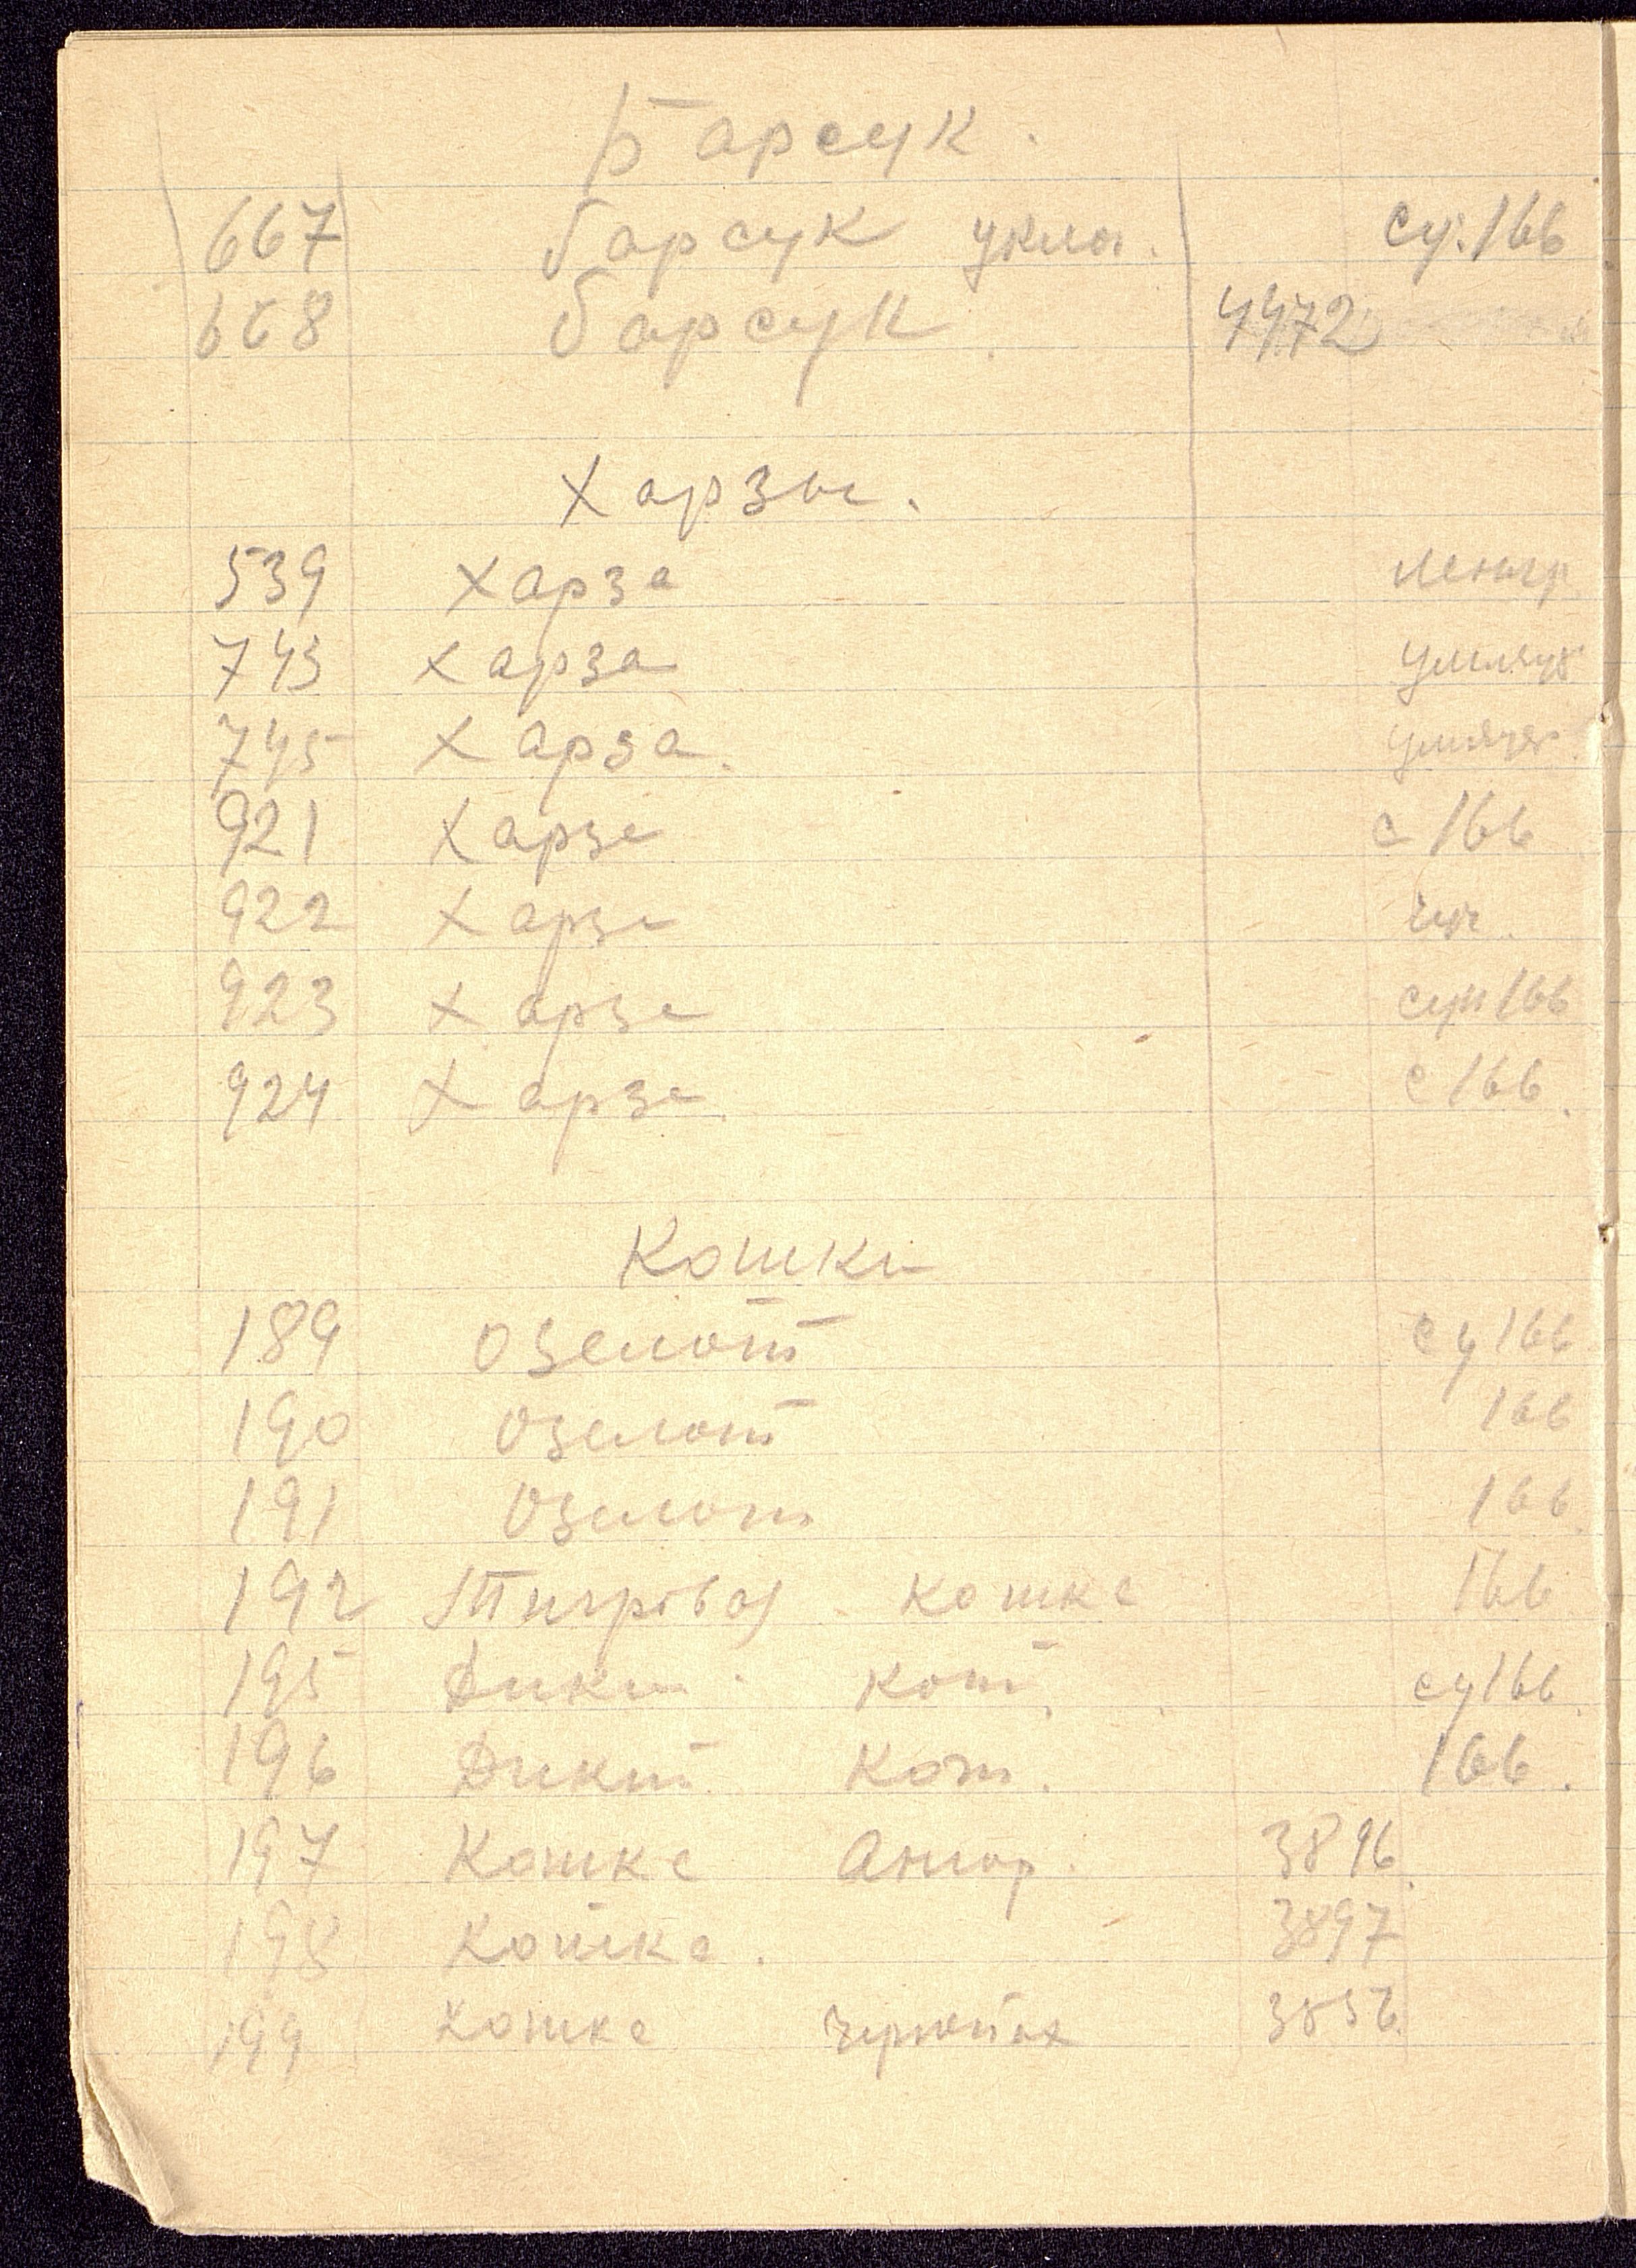 Барсук.
667 барсук су. 166
668 барсук 4472
Харзы.
539 Харза
743 Харза
745 Харза.
921 Харза с 166
922 Харза
923 Харза сун 166
924 Харза с 166.
Кошки
189 Озелот су 166
190 Озелот 166
191 Озелот 166
192 Тигровая кошка 166
195 Дикий кот. су 166
196 Дикий Кот. 166.
197 Кошка Ангор. 3896
198 Кошка. 3897
199 Кошка